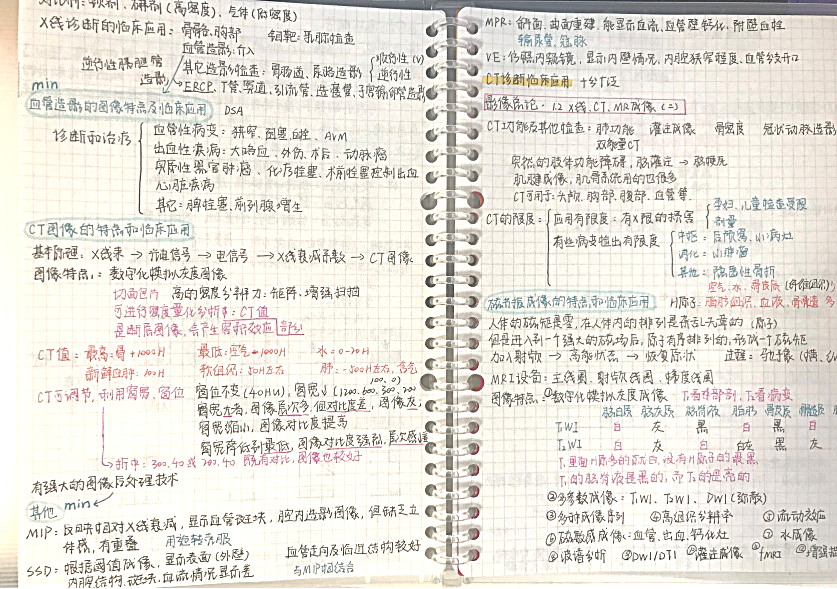 X线诊断的临床应用：骨骼、胸部 钼靶：乳腺检查
血管造影：介入
逆行性胰胆管造影
其它造影检查：胃肠道、尿路造影
逆行性
ERCP、T管、窦道、引流管、
min
血管造影的图像特点及临床应用 DSA
诊断和治疗
血管性病变：狭窄、血栓、AVM
出血性疾病：大咯血、外伤、术后、动脉瘤
实质性器官肿瘤、化疗栓塞、术前栓塞控制出血
心脏疾病
其它：脾栓塞、前列腺增生
CT图像的特点和临床应用
基本原理：X线束→光电信号→电信号→X线衰减系数→CT图像
图像特点：数字化模拟灰度图像
高的密度分辨力：矩阵、增强扫描
可进行密度量化分析：CT值
是断层图像，会产生容积效应 部分
CT值：最高：骨+1000H 最低：空气-1000H 水=0-20H
新鲜血肿：100H 软组织：50H左右 肺：-500H左右，含气
CT可调节，利用窗宽、窗位
窗位不变(40HU)，窗宽↓(1200、600、300、200、100、0)
窗宽大者，图像层次多，但对比度差，图像灰；
窗宽缩小，图像对比度提高
窗宽降低到最低，图像对比度强烈，层次感
折中：300、40或200、40 既有对比，图像也较好
有强大的图像后处理技术
其他 min
MIP：反映相对X线衰减，显示血管斑块，腔内造影图像，但缺乏立体感，有重叠 用旋转克服
SSD：根据阈值成像，显示表面(外壁) 血管走向及临近结构较好
内腔结构、斑块、血流情况显示差 与MIP相结合
MPR：斜面、曲面重建，能显示血流，血管壁钙化，附壁血栓
输尿管、冠脉
VE：仿照内窥镜，显示内壁情况，内腔狭窄程度，血管分支开口
CT诊断临床应用 十分广泛
影像总论·1.2 X线、CT、MR成像(二)
CT功能及其他检查：肺功能 灌注成像 骨密度 冠状动脉造影
双能量CT
突然的肢体功能障碍，脑灌注→脑梗死
肌腱成像，肌骨系统用的也很多
CT可用于：头颅、胸部、腹部、血管等
CT的限度：
应用有限度：有X限的损害
孕妇、儿童检查受限
剂量
有些病变检出有限度
中枢：后颅窝、小病灶
消化：小肿瘤
其他：隐匿性骨折
空气、水、骨皮质(纤维组织)
磁共振成像的特点和临床应用 H原子：脂肪组织、血液、骨髓 多
人体的磁矩是零，在人体内的排列是杂乱无章的(原子)
但是进入到一个强大的磁场后，原子有序排列的，形成一个磁矩
加入射频→高能状态→恢复原状 过程：弛豫
MRI设备：主线圈、射频线圈、梯度线圈
图像特点：①数字化模拟灰度成像 T₁看解剖，T₂看病变
脑白质 脑灰质 脑脊液 脂肪 骨皮质
T₁WI 白 灰 黑 白 黑 白
T₂WI 白 灰 白 白灰 黑
T₁里面H原多的就白，没有H原子的最黑
T₁的脑脊液是黑的，而T₂的是亮的
②多参数成像：T₁WI、T₂WI、DWI(弥散)
③多种成像序列 ④高组织分辨率 流动效应
磁敏感成像：血管、出血、钙化灶 水成像
波谱分析 DWI/DTI 灌注成像 fMRI